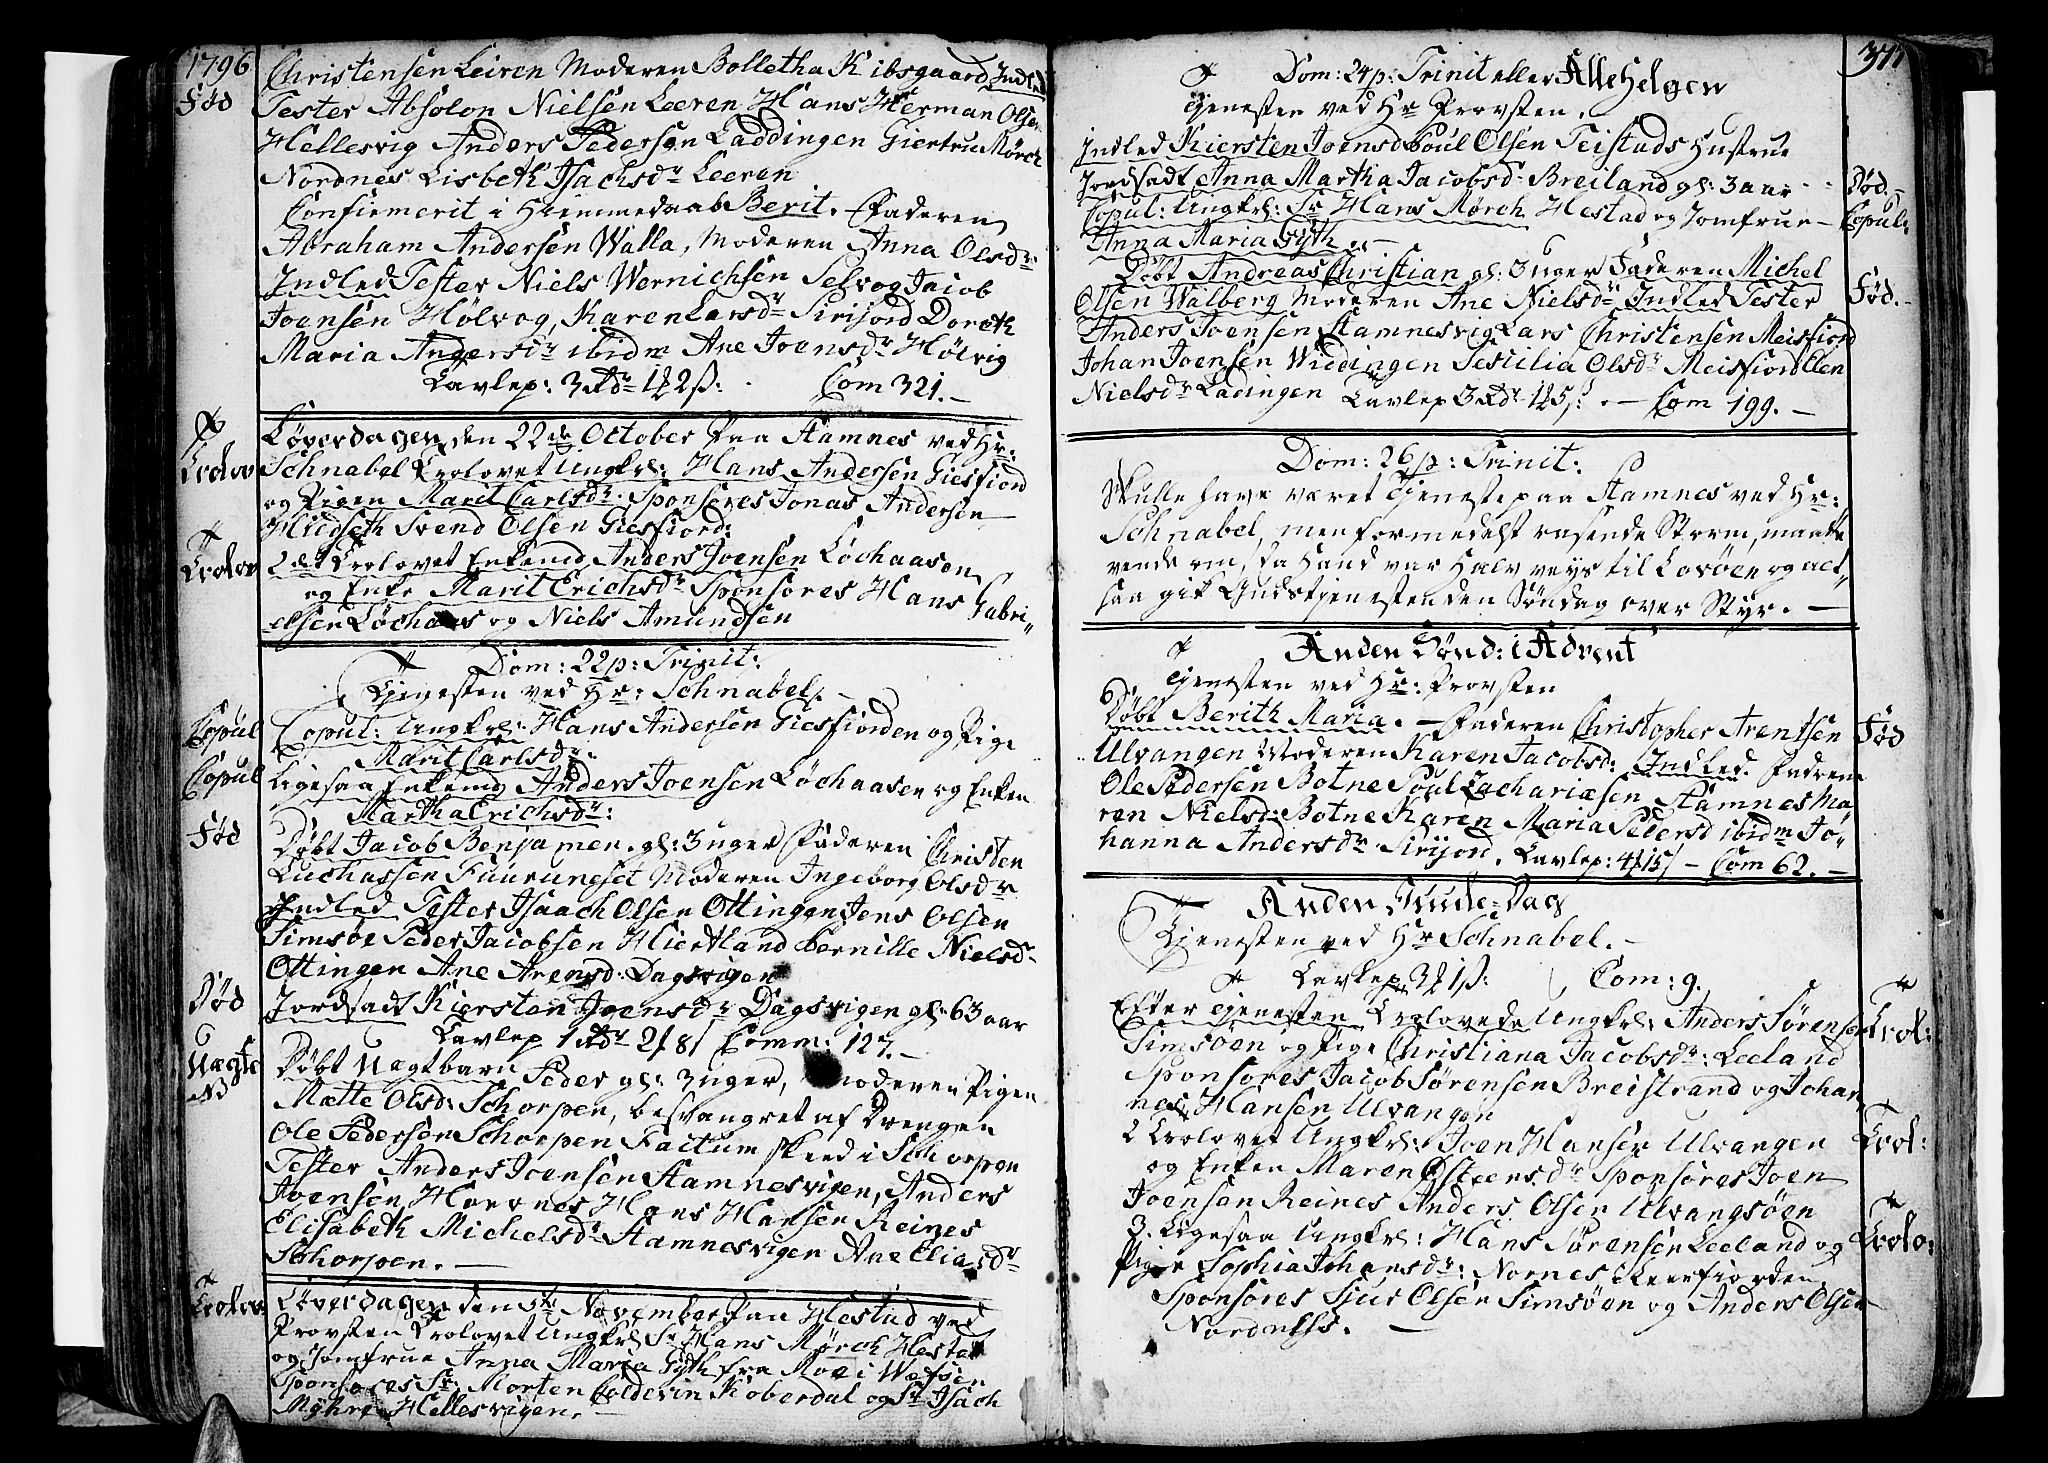 1796
Christensen Leiren Moderen Bolletha Kibsgaard Indled
Fød
Tester Absolon Nielsen Leeren Hans Herman Olsen
Hellesvig Anders Pedersen Laddingen Giertrue Mørch
Nordnes Lisbeth Isachsdr Leeren
Confirmerit i Hiemmedaab Berit. Faderen
Abraham Andersen Walla, Moderen Anna Olsdr
Indled Tester Niels Wernichsen Selvog Jacob
Joensen Hølvog, Karen Larsdr Sirijord Doreth
Maria Andersdr ibidm Ane Joensdr Hølvig
Tavlep: 3 Rdr 1 2 ß: Com 321.
Løverdagen den 22de October paa Stamnes ved Hr:
Trolov
Schnabel Trolovet Ungkrl: Hans Andersen Giesfiord
og Pigen Marit Carlsdr. Sponsores Jonas Andersen
Svend Olsen Giesfiord:
Trolov
2det Trolovet Enkemd Anders Joensen Løchaasen
og Enke Marit Erichsdr Sponsores Hans Gabri-
elsen Løchaas og Niels Amundsen
Dom: 22 p: Trinit:
Tjenesten ved Hr: Schnabel.
Copul
Copul: Ungkrl: Hans Andersen Giesfiorden og Pige
Marit Carlsdr.
Copul
Ligesaa Enkemd Anders Joensen Løchaasen og Enken
Martha Erichsdr:
Fød
Døbt Jacob Benjamen. gl: 3 uger Faderen Christen
Luchassen Fuuruneset Moderen Ingeborg Olsdr
Indled Tester Isaach Olsen Ottingen Jens Olsen
Simsøe Peder Jacobsen Hiertland Pernille Nielsd
Ottingen Ane Arensd: Dagsvigen
Død
Jordsadt Kiersten Joensdr Dagsvigen gl: 63 aar
Tavlep 1 Rdr 2 8 Comm: 127.
Uægte
NB
Døbt Uægtbarn Peder gl: 3 uger, Moderen Pigen
Mætte Olsd: Schorpen, besvangret af Drengen
Ole Pedersen Schorpen Factum skeed i Schorpen
Tester Anders Joensen Stamnesvigen, Anders
Joensen Hans Hansen Reines
Elisabeth Michelsdr Stamnesvigen Ane Eliasdr
Schorpen.
Trolov
Løverdagen den 5te November paa Hestad ved
Provsten Trolovet Ungkrl Sr Hans Mørch Hestad
og Jomfrue Anna Maria Gyth fra Moe i Wefsen
Sponsores Sr: Morten Coldevin Koberdal og Sr Isach
Hellesvigen.
377
Dom: 24 p: Trinit eller Alle Helgen
Tjenesten ved Hr Provsten.
Indled Kiersten Joensd Poul Olsen Teistads Hustrue
Jordsadt Anna Martha Jacobsd: Breiland gl: 3 aar
Død.
Copul: Ungkrl: Sr Hans Mørch Hestad og Jomfrue
Copul:
Anna Maria Gyth.
Døbt Andreas Christian gl: 3 uger Faderen Michel
Fød.
Olsen Walberg Moderen Ane Nielsdr Indled Tester
Anders Joensen Stamnesvig Lars Christensen Meisfiord
Johan Joensen Widdingen Sesilia Olsdr Meisfiord Elen
Nielsdr Ladingen Tavlep 3 Rdr 1 5 ß. Com 199.
Dom: 26 p: Trinit:
Skulle have været Tjeneste paa Stamnes ved Hr:
Schnabel, men formedelst rasende Storm, maatte
vende om, da Hand var Halv veys til Lovøen og alt
saa gik Gudstjenesten den Søndag over Styr.
Anden Sønd: i Advent
Tjenesten ved Hr: Provsten
Døbt Berith Maria. Faderen Christopher Arentsen
Fød
Ulvangen Moderen Karen Jacobsd: Indled. Fadrene
Ole Pedersen Botne Poul Zachariæsen Stamnes Ma
ren Nielsd: Botne Karen Maria Pedersd ibidm Jo-
hanna Andersdr Sirijord. Tavlep: 4 15 Com 62.
Anden Juule-Dag
Tjenesten ved Hr Schnabel.
Tavlep 3 1 ß: Com: 9.
Efter Tjenesten Trolovede Ungkrl: Anders Sørensen
Trol:
Simsøen og Pige Christiana Jacobsdr: Leeland
Sponsores Jacob Sørensen Breistrand og Johan
nes Hansen Ulvangen
2 Trolovet Ungkrl: Joen Hansen Ulvangen
Trol:
og Enken Maren Østensdr Sponsores Joen
Joensen Reines Anders Olsen Ulvangsøen
3. Ligesaa Ungkrl: Hans Sørensen Leeland og
Trolo:
Pige Sophia Johansdr: Nornes i Leerfiorden
Sponsores Sjur Olsen Simsøen og Anders Olsen
Nordness.